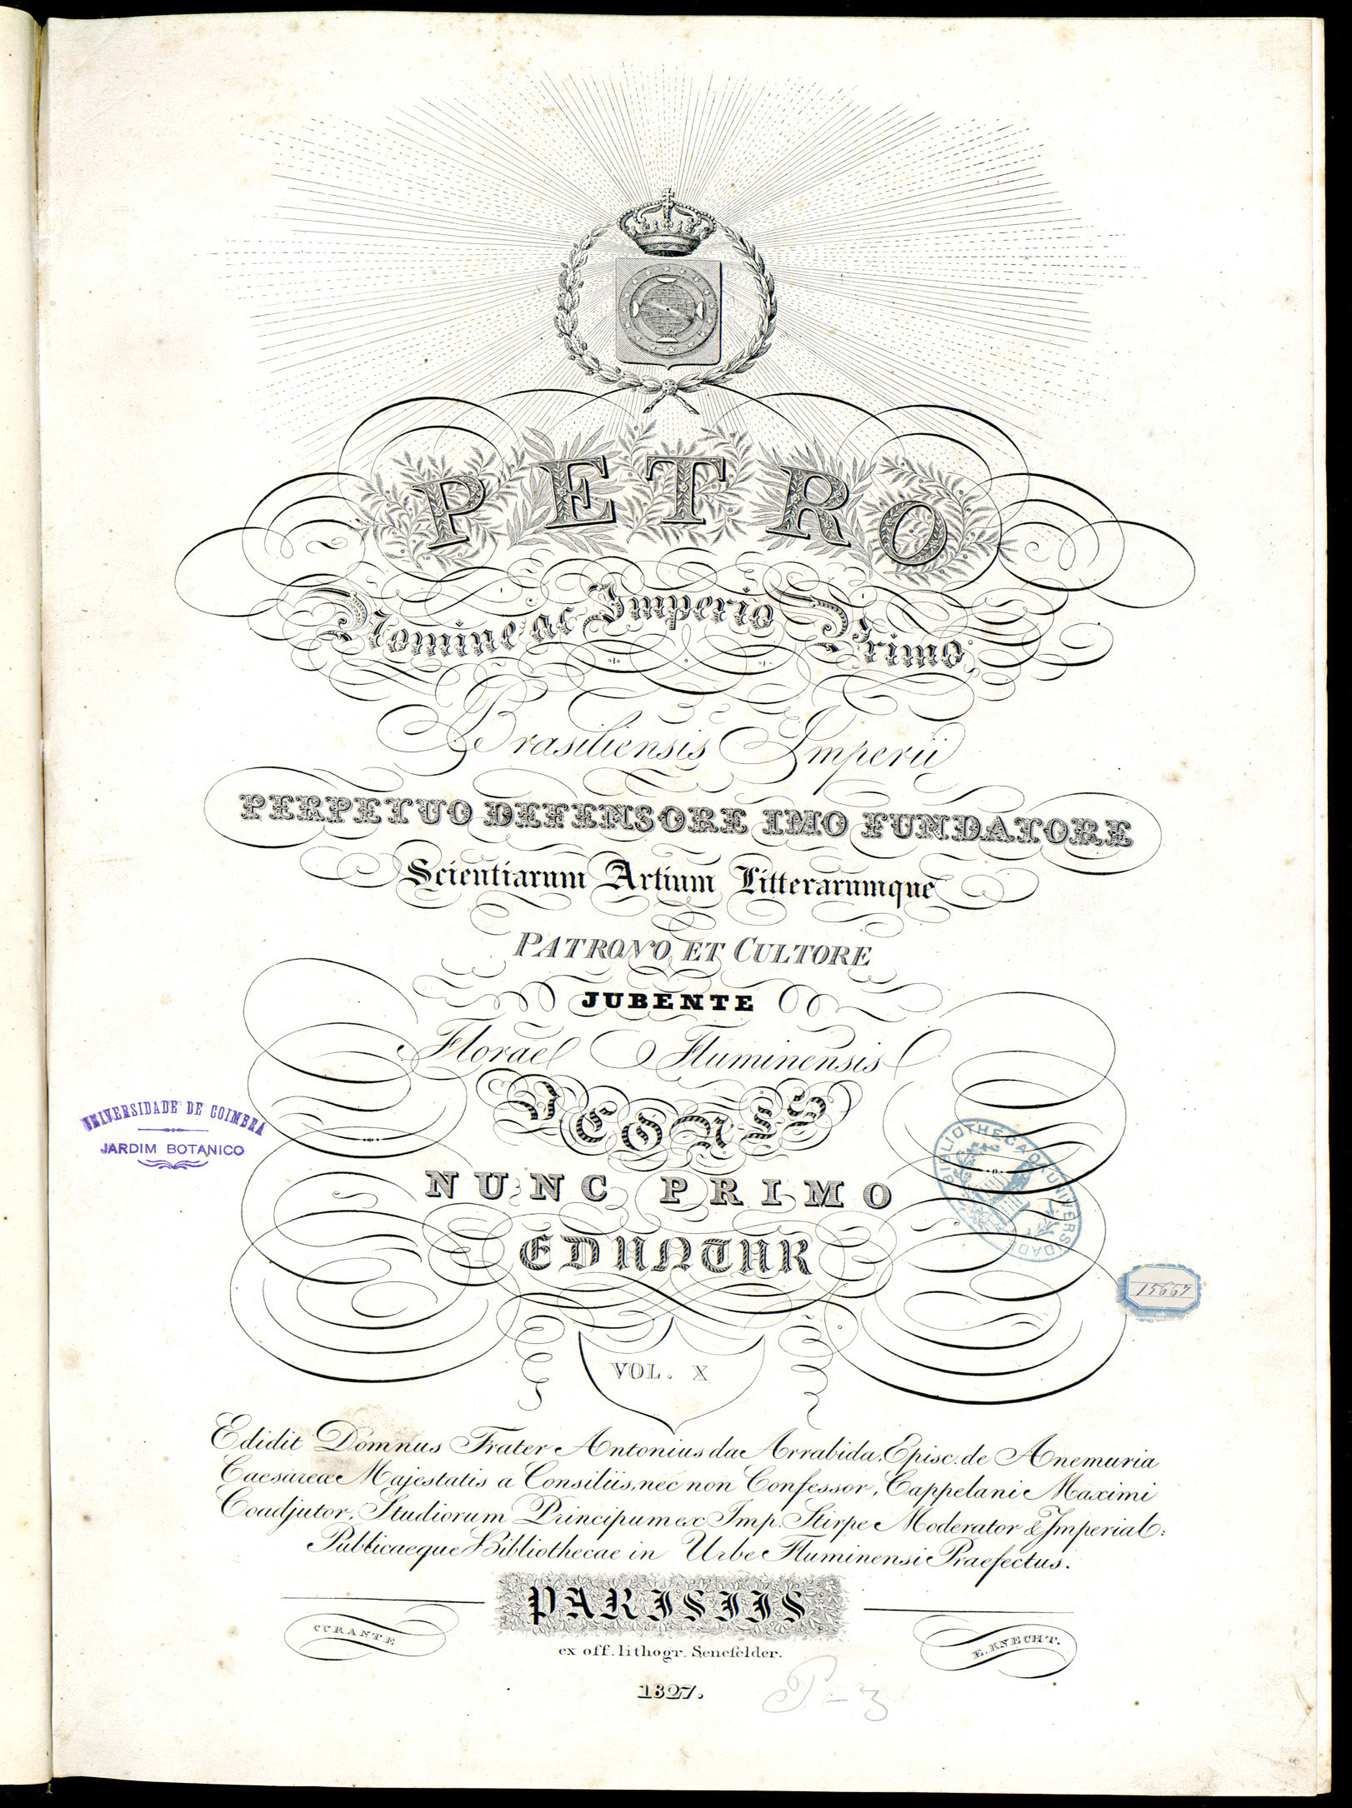 PETRO
Nomine ac Imperio Primo,
Brasiliensis Imperii
PERPETUO DEFENSORE IMO FUNDATORE
Scientiarum Artium Litterarumque
PATRONO ET CULTORE
JUBENTE
Florae Fluminensis
ICONES
NUNC PRIMO
EDUNTUR
UNIVERSIDADE DE COIMBRA
JARDIM BOTANICO
BIBLIOTHECA DA UNIVERSIDADE
15667
VOL. X
Edidit Domnus Frater Antonius da Arrabida, Episc. de Anemuria
Caesareae Majestatis a Consiliis, nec non Confessor, Cappelani Maximi
Coadjutor, Studiorum Principum ex Imp. Stirpe Moderator & Imperial:
Publicaeque Bibliothecae in Urbe Fluminensi Praefectus.
PARISIIS
CURANTE E. KNECHT.
ex off. lithogr. Senefelder.
1827.